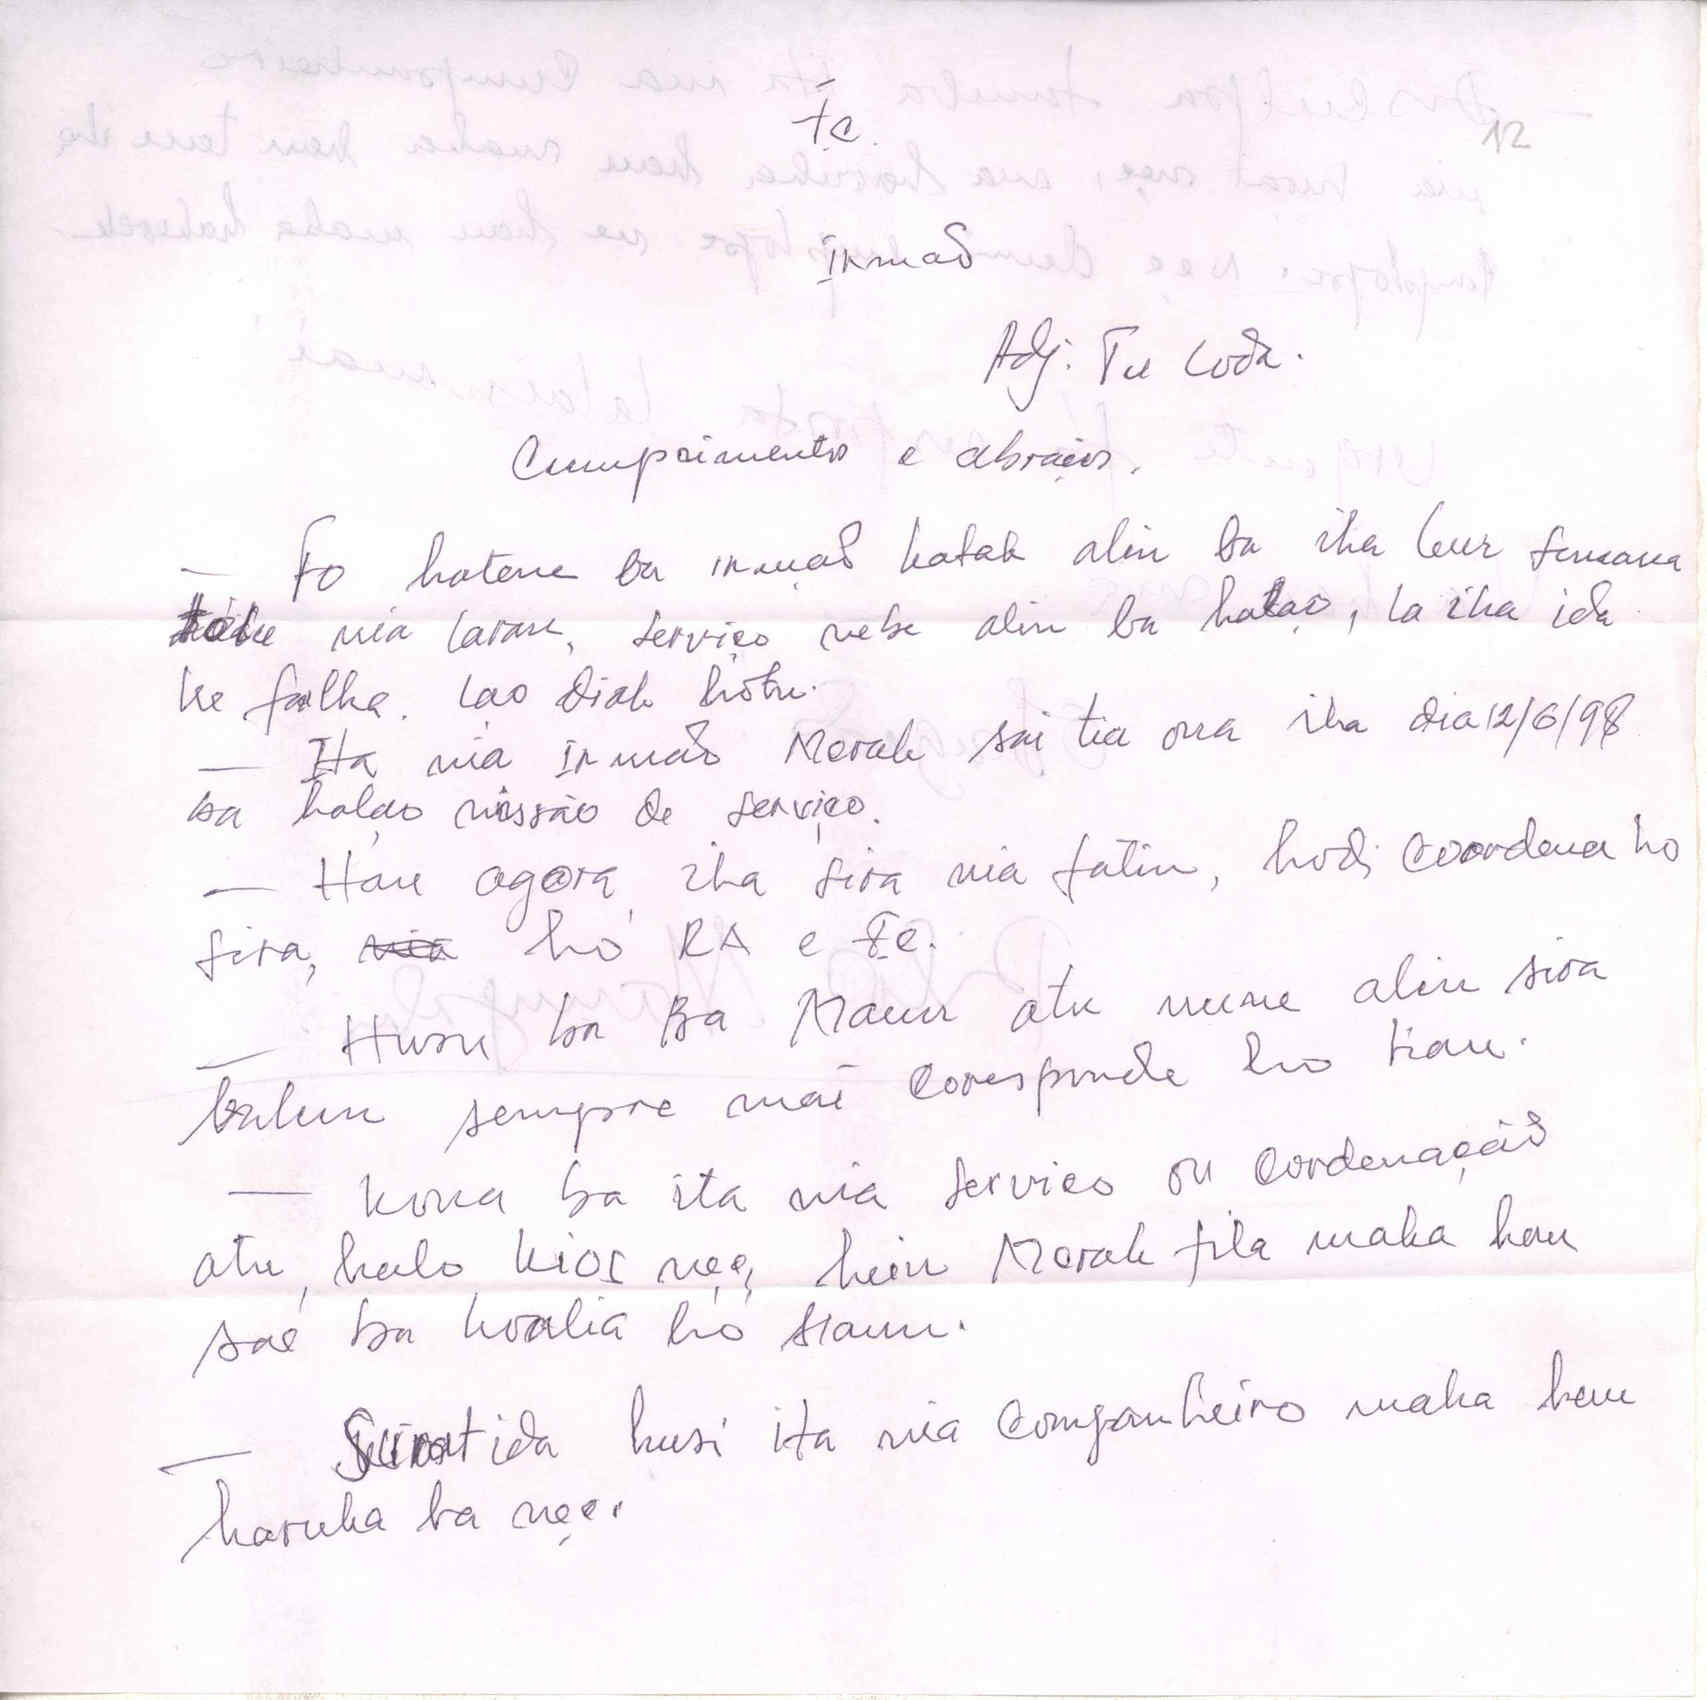 Te.
12
Irmaõ
Adj. Tu Loda.
Cumprimentos e abraços.
— Fo hatene ba irmaõ katak alin ba iha leur semana
nia laran, serviço nebe alin ba halao, la iha ida
ke falha. Lao diak hotu.
— Ita nia Irmaõ Merak sai tia ona iha dia 12/6/98
ba halao missão de serviço.
— Hau agora iha sira nia fatin, hodi coordena ho
sira, ho RA e Te.
— Husu ba Ba Maur atu nune alin sira
balun sempre mai coresponde ho hau.
— Kona ba ita nia serviço ou cordenaçaõ
atu halo kios nee, hein Merak fila maka hau
sae ba koalia ho
— Surat ida husi ita nia companheiro maka hau
haruka ba nee.